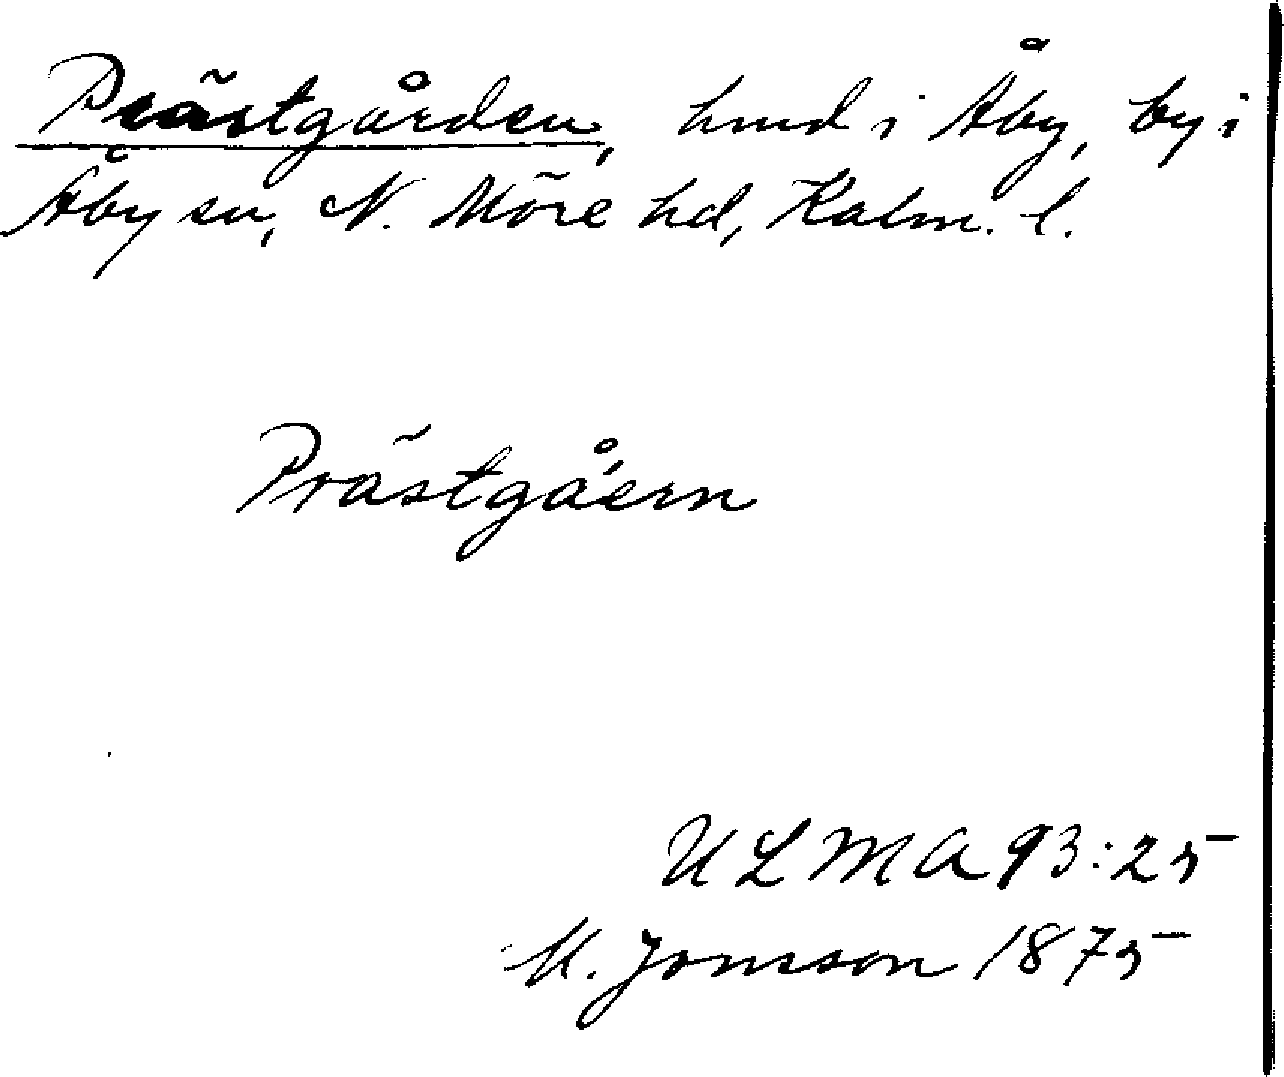 Prästgården, hmd i Åby, by i
Åby sn, N. Möre hd, Kalm. l.
Prästgå'ern
ULMA 93:25
M. Jonsson 1875